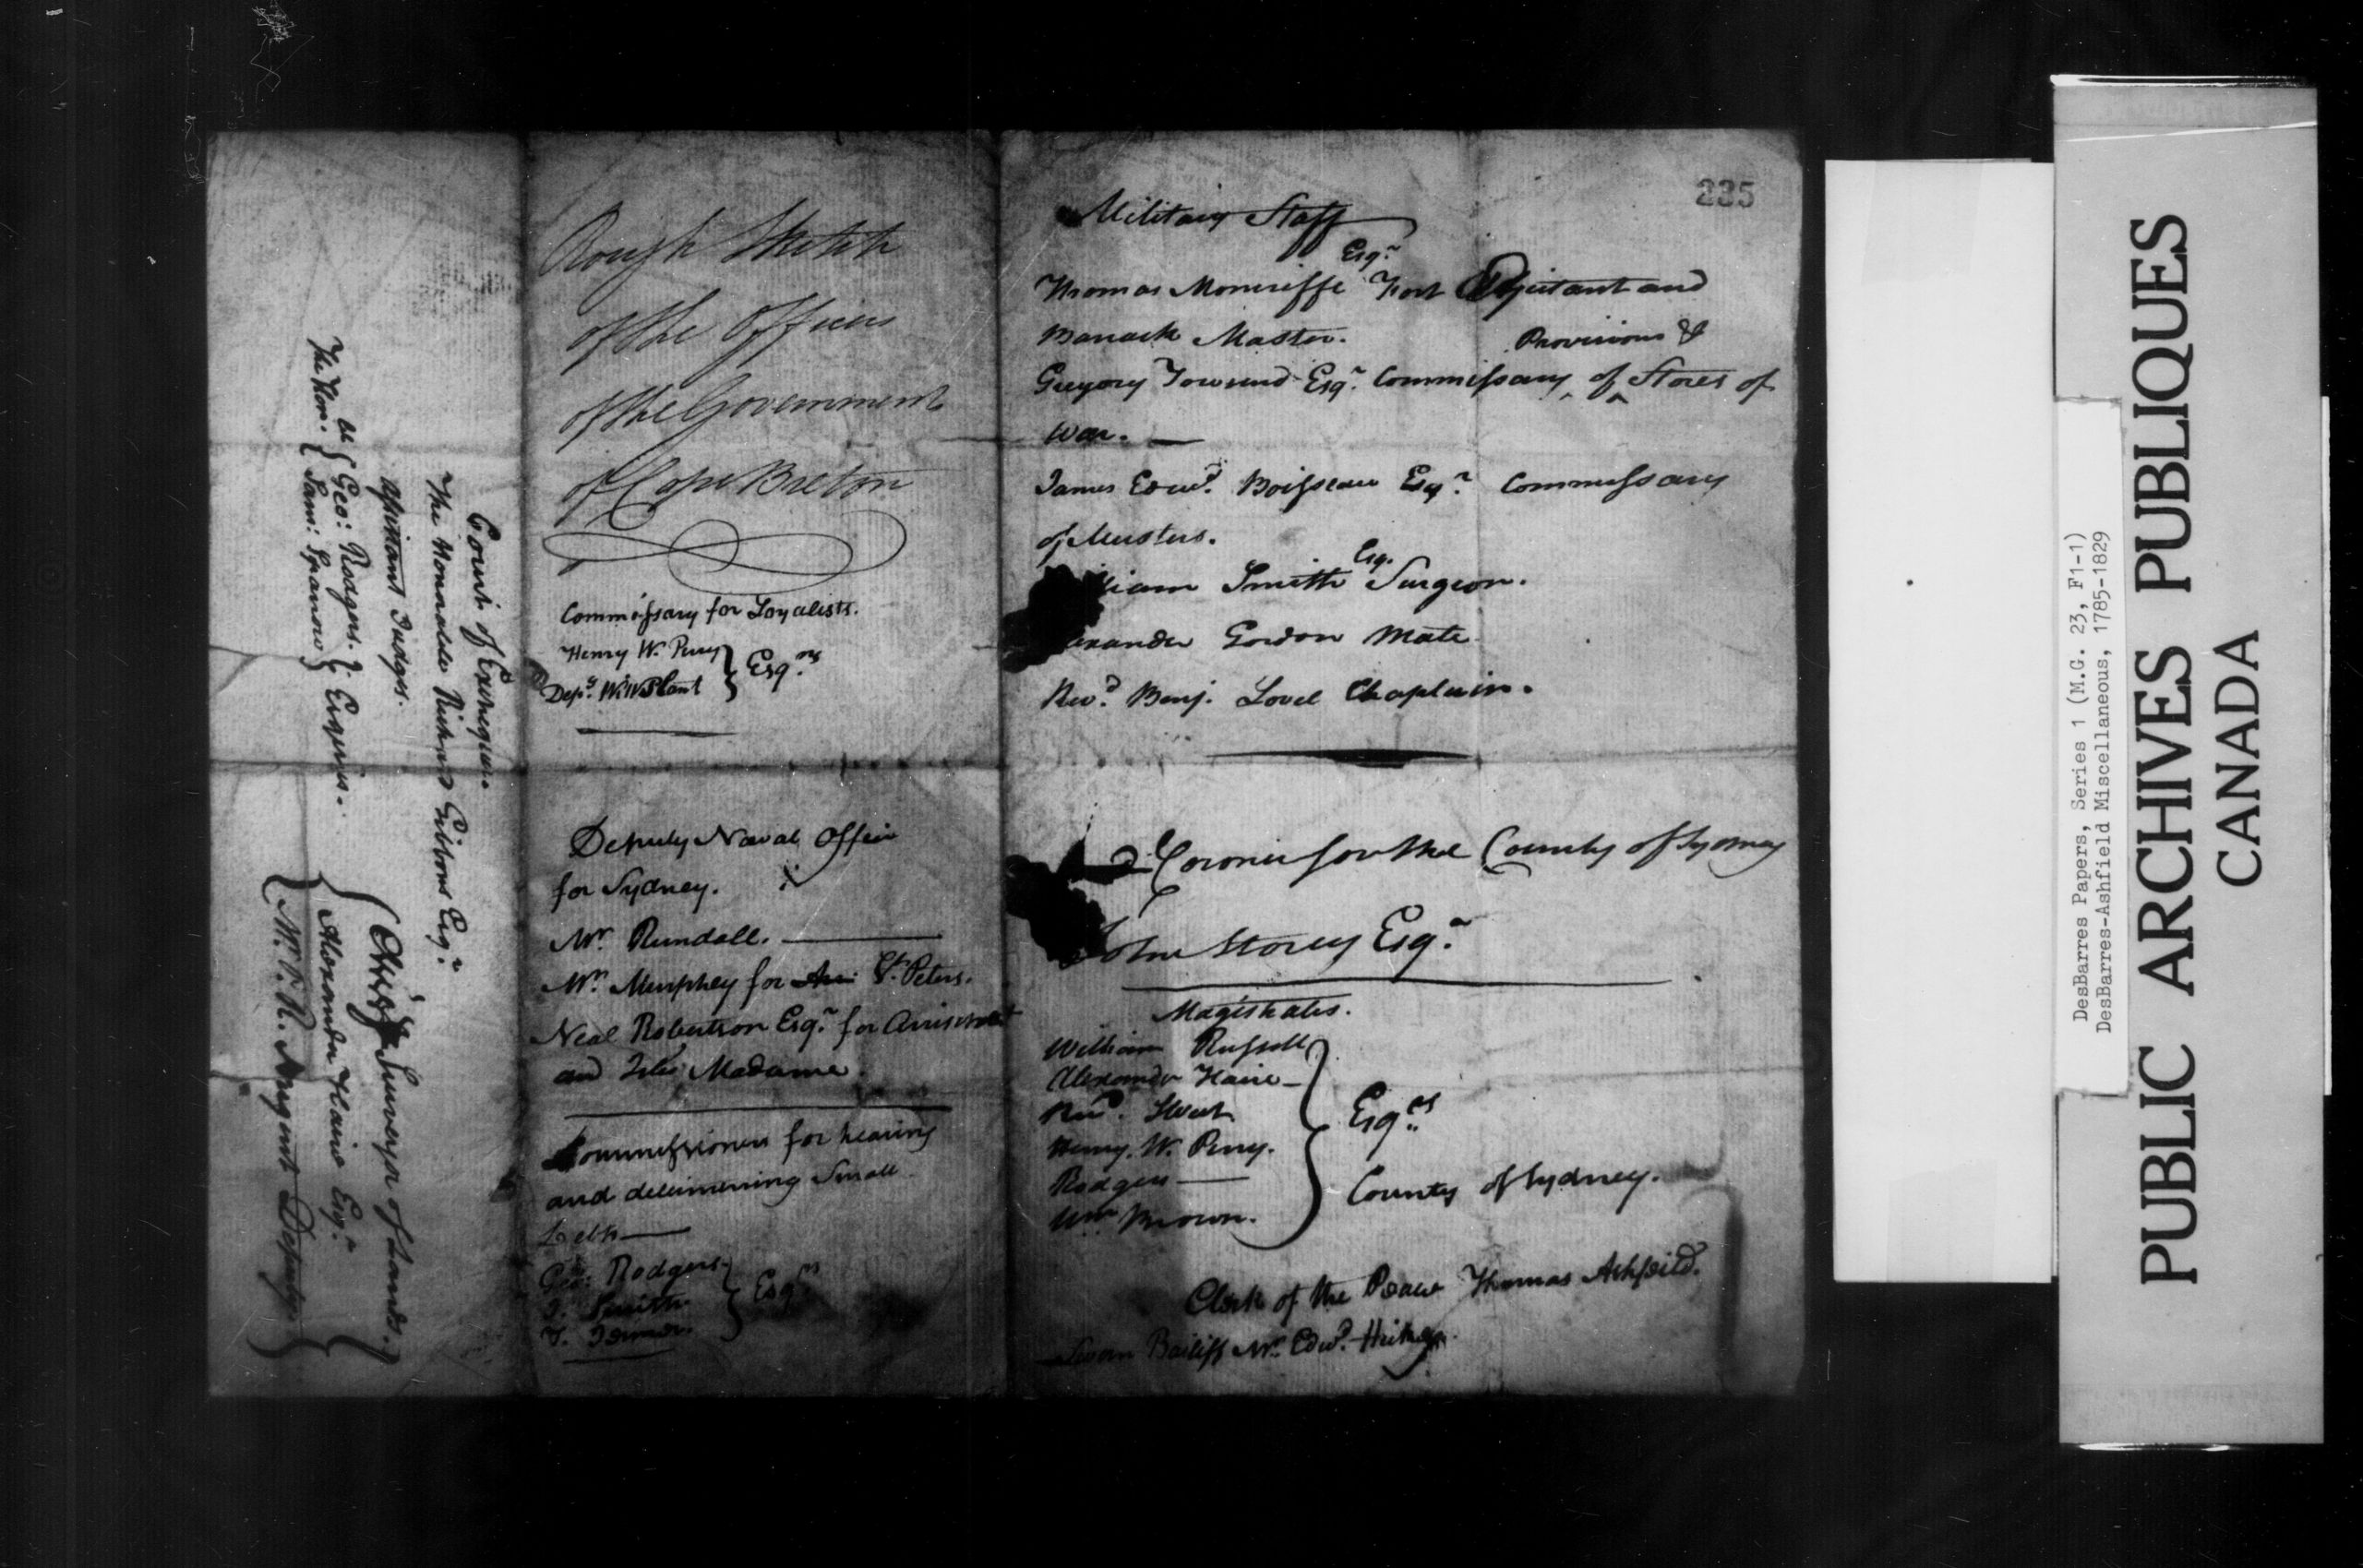 Court of Exchequer.
The Honorable Richard Gibbons Esqr.
Assistant Judges.
The Hon. Geo: Rodgers.
Sam: Sparrow Esquires.
Chief Surveyor of Lands.
Alexander Haire Esqr.
Nugent Deputy
Rough Sketch
of the Officers
of the Government
of Cape Breton
Commissary for Loyalists.
Henry W. Perry
Depy. Wm Plant
Esqrs
Deputy Naval Officer
for Sydney.
Mr. Rundall.
Mr. Murphey for St. Peters.
Neal Robertson Esqr. for Arrichat
and Isle Madame.
Commissioners for hearing
and determining Small
Debts
Geo: Rodgers
J. Smith
T. Venner.
Esqrs
235
Military Staff
Thomas Moncrieffe Esqr. Fort Adjutant and
Barrack Master.
Gregory Townsend Esqr. Commissary of Provisions & Stores of
War.
James Edwd. Boisseau Esqr. Commissary
of Musters.
liam Smith Esq. Surgeon.
exander Gordon Mate
Revd. Benj. Lovel Chaplain.
Coroner for the County of Sydney
John Storey Esqr.
Magistrates.
William Russell
Alexander Haire
Stout
Henry W. Perry.
Rodgers
Wm Brown.
Esqrs
County of Sydney.
Clerk of the Peace Thomas Ashfeild.
Sworn Bailiff Mr. Edwd.
DesBarres Papers, Series 1 (M.G. 23, F1-1)
DesBarres-Ashfield Miscellaneous, 1785-1829
PUBLIC ARCHIVES PUBLIQUES
CANADA